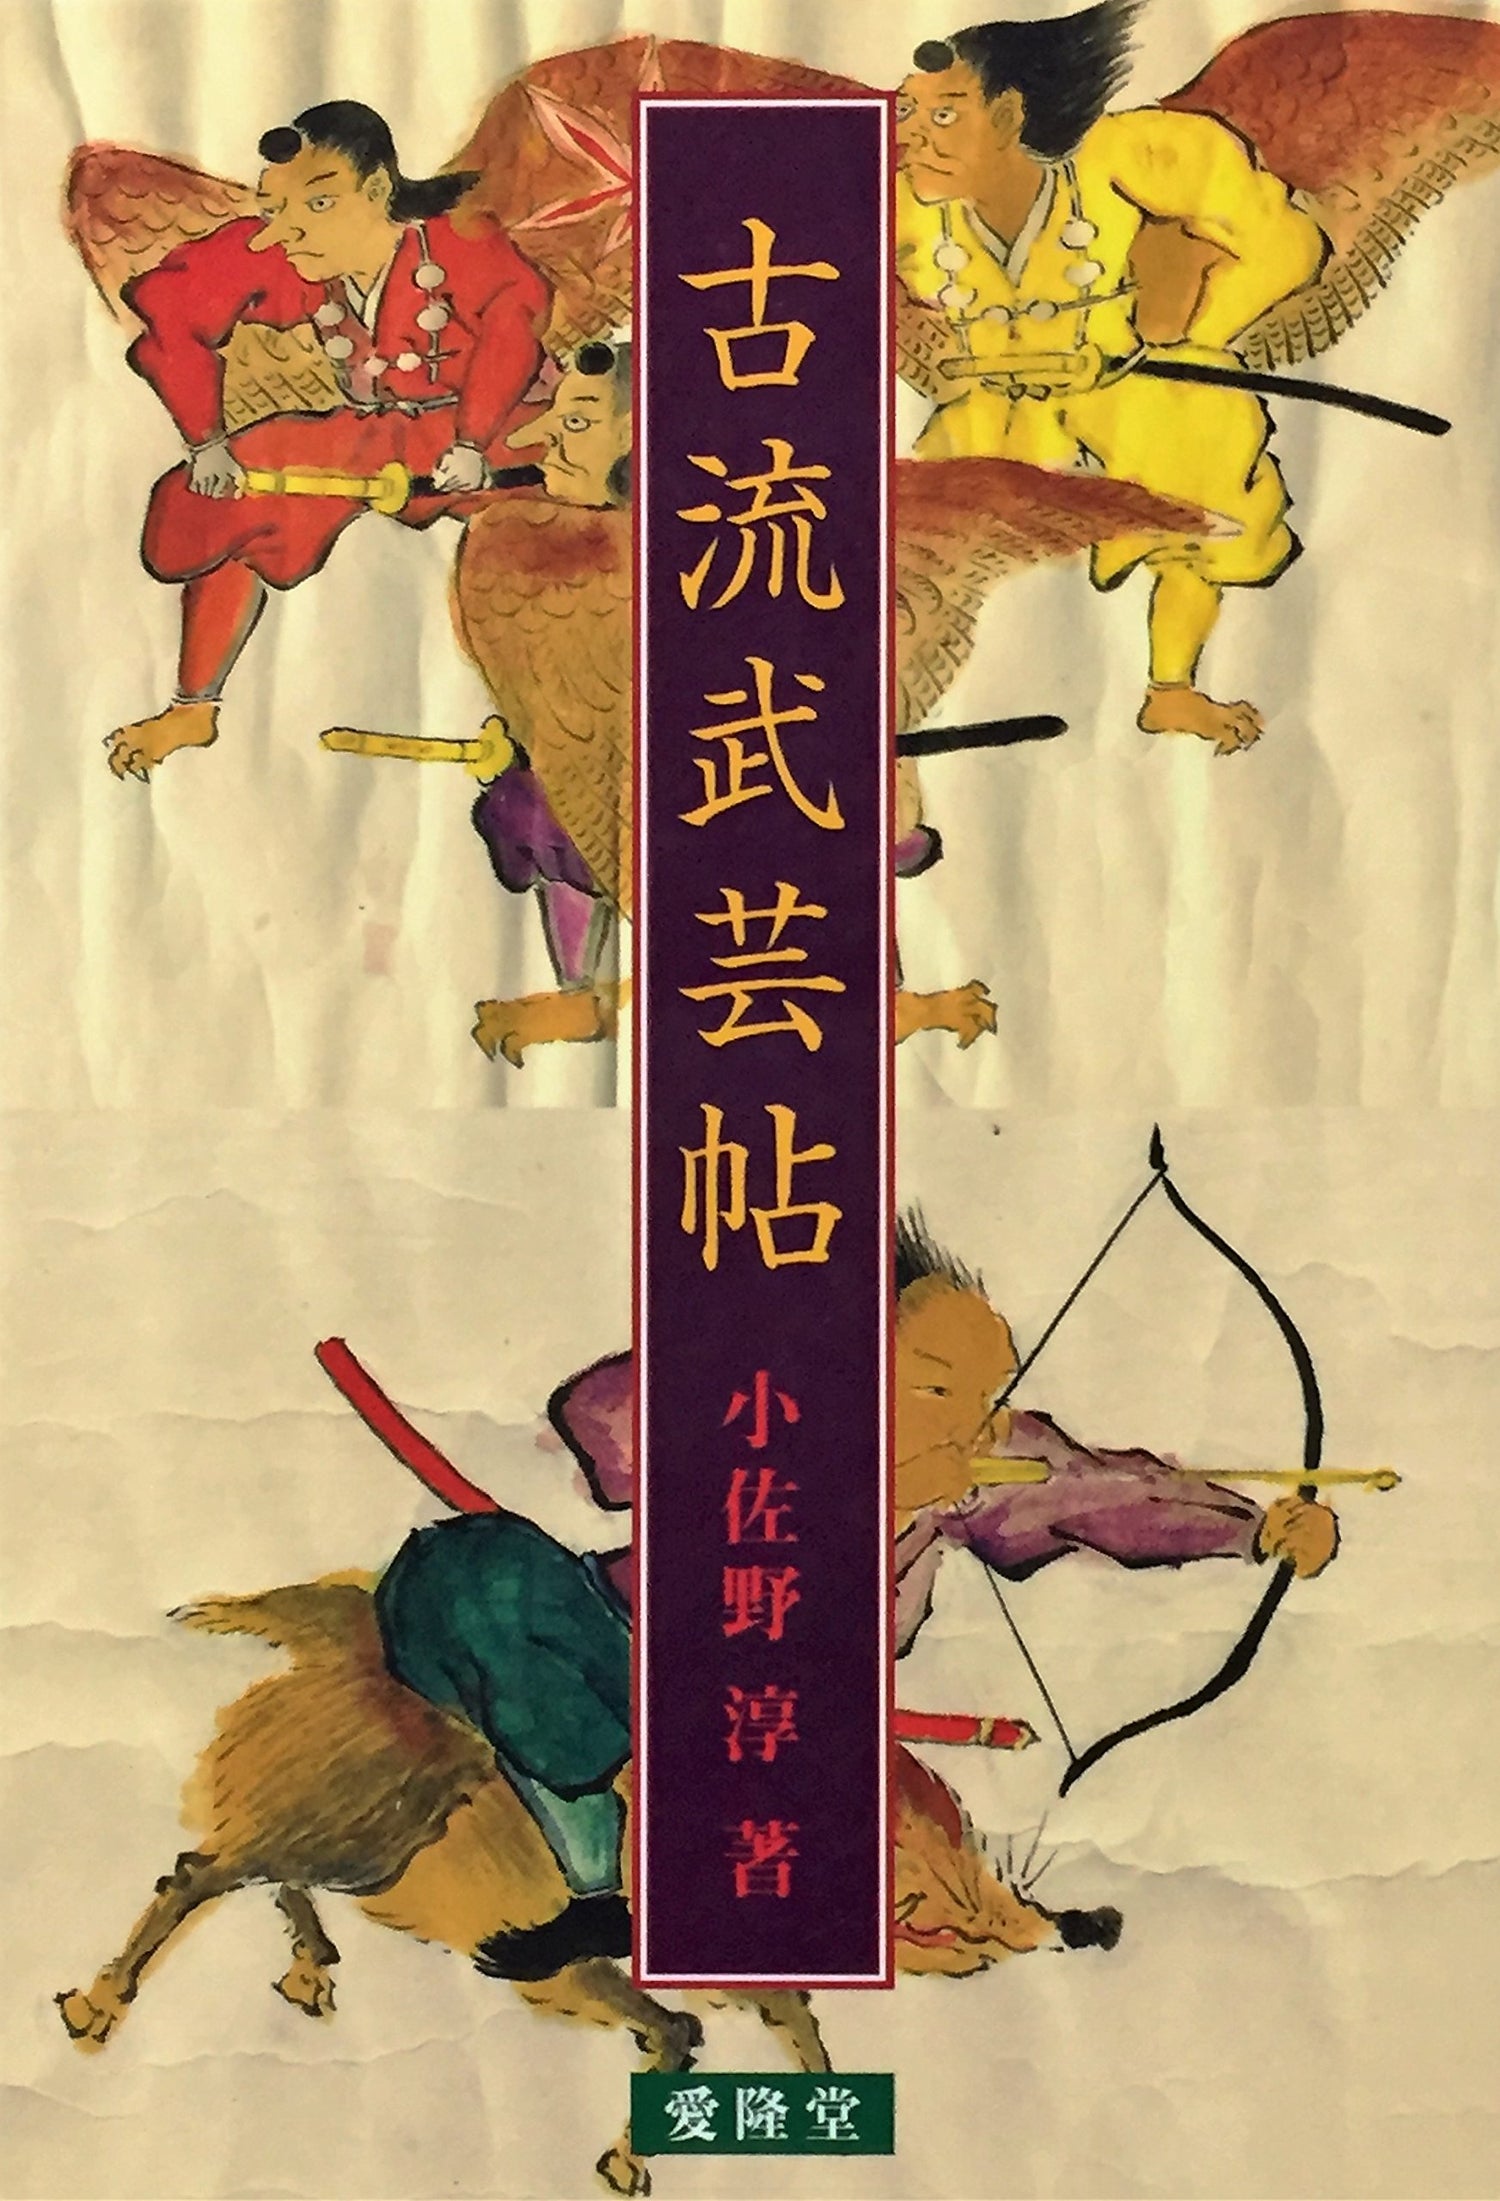 古流武芸帖
小佐野淳 著
愛隆堂